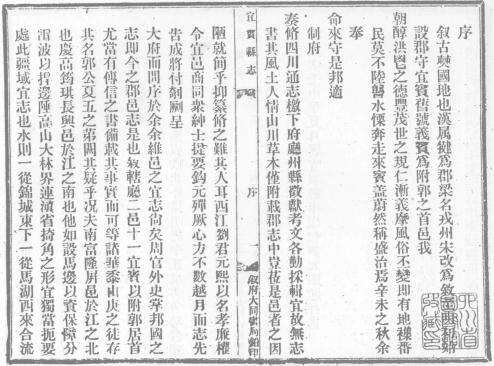 序
叙古僰國地也漢属犍為郡梁名戎州宋改為敘
設郡守宜賓舊號義賓為附郭之首邑我
朝醇洪鬯之德豐茂世之規仁漸義摩風俗不變即有地襍番
民莫不陸讋水慄奔走來賓藹蔚然稱盛治焉辛未之秋余
奉
命來守是邦適
制府
奏修四川通志檄下府廳州縣徵獻考文各勤採輯宜故無志
書其風土人情山川草木僅附載郡志中豈蒞是邑者之因
宜賓縣志
序
敘府大同書局鉛印
陋就簡乎抑纂修之難其人耳西江劉君元熙以名孝廉權
令宜邑商同衆紳士提要鈎元殫厥心力不數越月而志先
告成將付剞劂呈
大府而問序於余余維邑之宜志尙矣周官外史掌邦國之
志即今之郡邑志是也叙轄廳二邑十一宜賓以附郭居首
尤當有傳信之書備載其事實而可等諸華黍由庚之徒存
其名郭公夏五之第闕其疑乎况夫南富隆屏邑於江之北
也慶高筠珙長興邑於江之南也他如設馬邊以資保障分
雷波以捍邊陲高山大林界連滇省掎角之形宜獨當扼要
處此疆域宜志也水則一從錦城東下一從馬湖西來合流